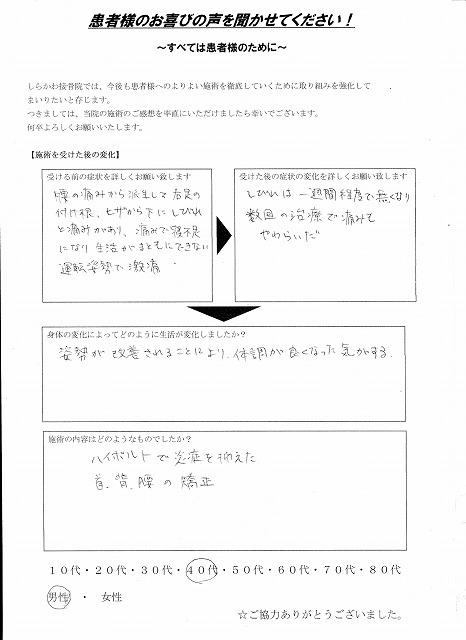 患者様のお喜びの声を聞かせてください！
～すべては患者様のために～
しらかわ接骨院では、今後も患者様へのよりよい施術を徹底していくために取り組みを強化して
まいりたいと存じます。
つきましては、当院の施術のご感想を率直にいただけましたら幸いでございます。
何卒よろしくお願いいたします。
【施術を受けた後の変化】
受ける前の症状を詳しくお願い致します
腰の痛みから派生して右足の
付け根、ヒザから下にしびれ
と痛みがあり、痛みで寝不足
になり生活がまともにできない
運転姿勢で激痛
受けた後の症状の変化を詳しくお願い致します
しびれは一週間程度で無くなり
数回の治療で痛みも
やわらいだ
身体の変化によってどのように生活が変化しましたか？
姿勢が改善されることにより、体調が良くなった気がする.
施術の内容はどのようなものでしたか？
ハイボルトで炎症を抑えた
首、背、腰の矯正
１０代・２０代・３０代・４０代・５０代・６０代・７０代・８０代
男性 ・ 女性
☆ご協力ありがとうございました。